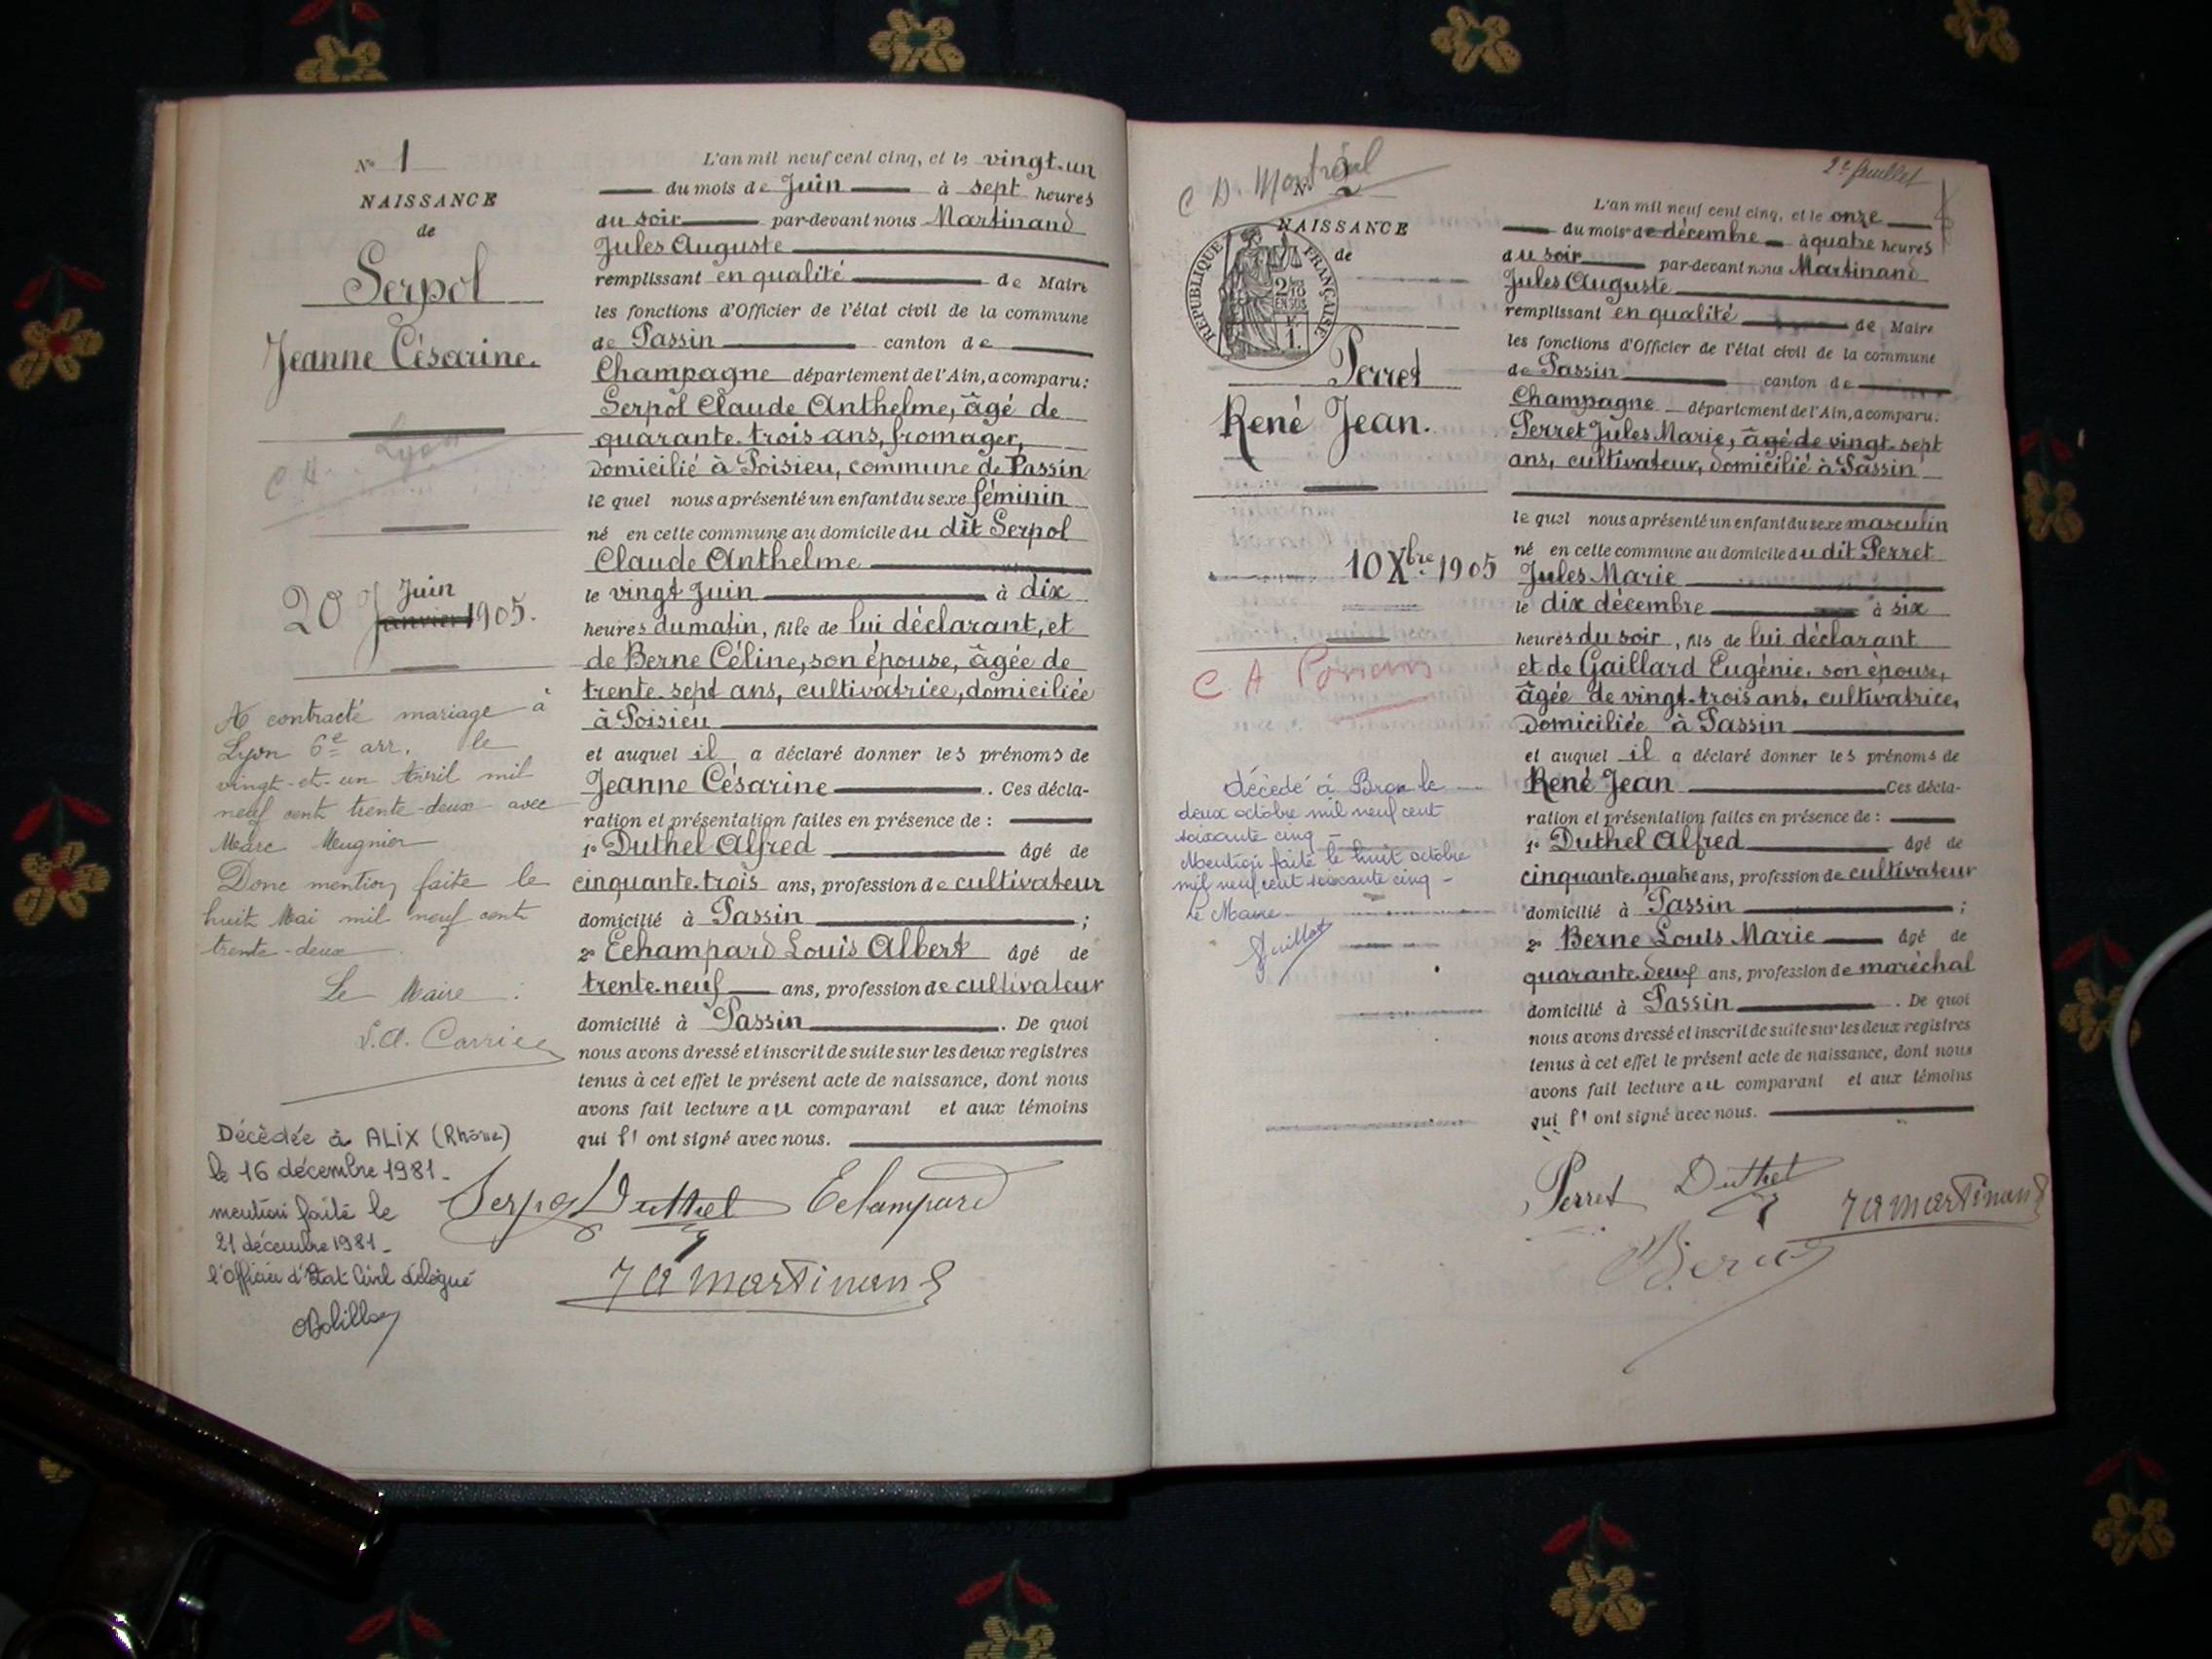 N° 1
NAISSANCE
de
Serpol
Jeanne Césarine.
Lyon
20 Juin
Janvier 1905.
A contracté mariage à
Lyon 6e arr. le
vingt-et-un Avril mil
neuf cent trente-deux avec
Marc Meugnier
Dont mention faite le
huit Mai mil neuf cent
trente-deux.
Le Maire :
Décédée à ALIX (Rhône)
le 16 décembre 1981.
mention faite le
21 décembre 1981.
l'Officier d'Etat Civil délégué
L'an mil neuf cent cinq, et le vingt-un
du mois de Juin à sept heures
du soir par-devant nous Martinand
Jules Auguste
remplissant en qualité de Maire
les fonctions d'Officier de l'état civil de la commune
de Passin canton de
Champagne département de l'Ain, a comparu :
Serpol Claude Anthelme, âgé de
quarante-trois ans, fromager,
domicilié à Poisieu, commune de Passin
lequel nous a présenté un enfant du sexe féminin
né en cette commune au domicile du dit Serpol
Claude Anthelme
le vingt Juin à dix
heures du matin, fille de lui déclarant, et
de Berne Céline, son épouse, âgée de
trente-sept ans, cultivatrice, domiciliée
à Poisieu
et auquel il a déclaré donner les prénoms de
Jeanne Césarine. Ces décla-
ration et présentation faites en présence de :
1° Duthel Alfred âgé de
cinquante-trois ans, profession de cultivateur
domicilié à Passin ;
2° Echampard Louis Albert âgé de
trente-neuf ans, profession de cultivateur
domicilié à Passin. De quoi
nous avons dressé et inscrit de suite sur les deux registres
tenus à cet effet le présent acte de naissance, dont nous
avons fait lecture au comparant et aux témoins
qui l' ont signé avec nous.
Serpol Duthel Echampard
J A Martinand
C D. Montréal
N° 2
2e feuillet
NAISSANCE
de
RÉPUBLIQUE FRANÇAISE
2/10
EN SUS
1.
Perret
René Jean.
10 Xbre 1905
C A
décédé à Bron le
deux octobre mil neuf cent
soixante cinq -
Mention faite le huit octobre
mil neuf cent soixante cinq -
le Maire
L'an mil neuf cent cinq, et le onze
du mois de décembre à quatre heures
du soir par-devant nous Martinand
Jules Auguste
remplissant en qualité de Maire
les fonctions d'Officier de l'état civil de la commune
de Passin canton de
Champagne département de l'Ain, a comparu :
Perret Jules Marie, âgé de vingt-sept
ans, cultivateur, domicilié à Passin
lequel nous a présenté un enfant du sexe masculin
né en cette commune au domicile du dit Perret
Jules Marie
le dix décembre à six
heures du soir, fils de lui déclarant
et de Gaillard Eugénie, son épouse,
âgée de vingt-trois ans, cultivatrice,
domiciliée à Passin
et auquel il a déclaré donner les prénoms de
René Jean Ces décla-
ration et présentation faites en présence de :
1° Duthel Alfred âgé de
cinquante-quatre ans, profession de cultivateur
domicilié à Passin ;
2° Berne Louis Marie âgé de
quarante-deux ans, profession de maréchal
domicilié à Passin. De quoi
nous avons dressé et inscrit de suite sur les deux registres
tenus à cet effet le présent acte de naissance, dont nous
avons fait lecture au comparant et aux témoins
qui l' ont signé avec nous.
Perret Duthel J A Martinand
Berne